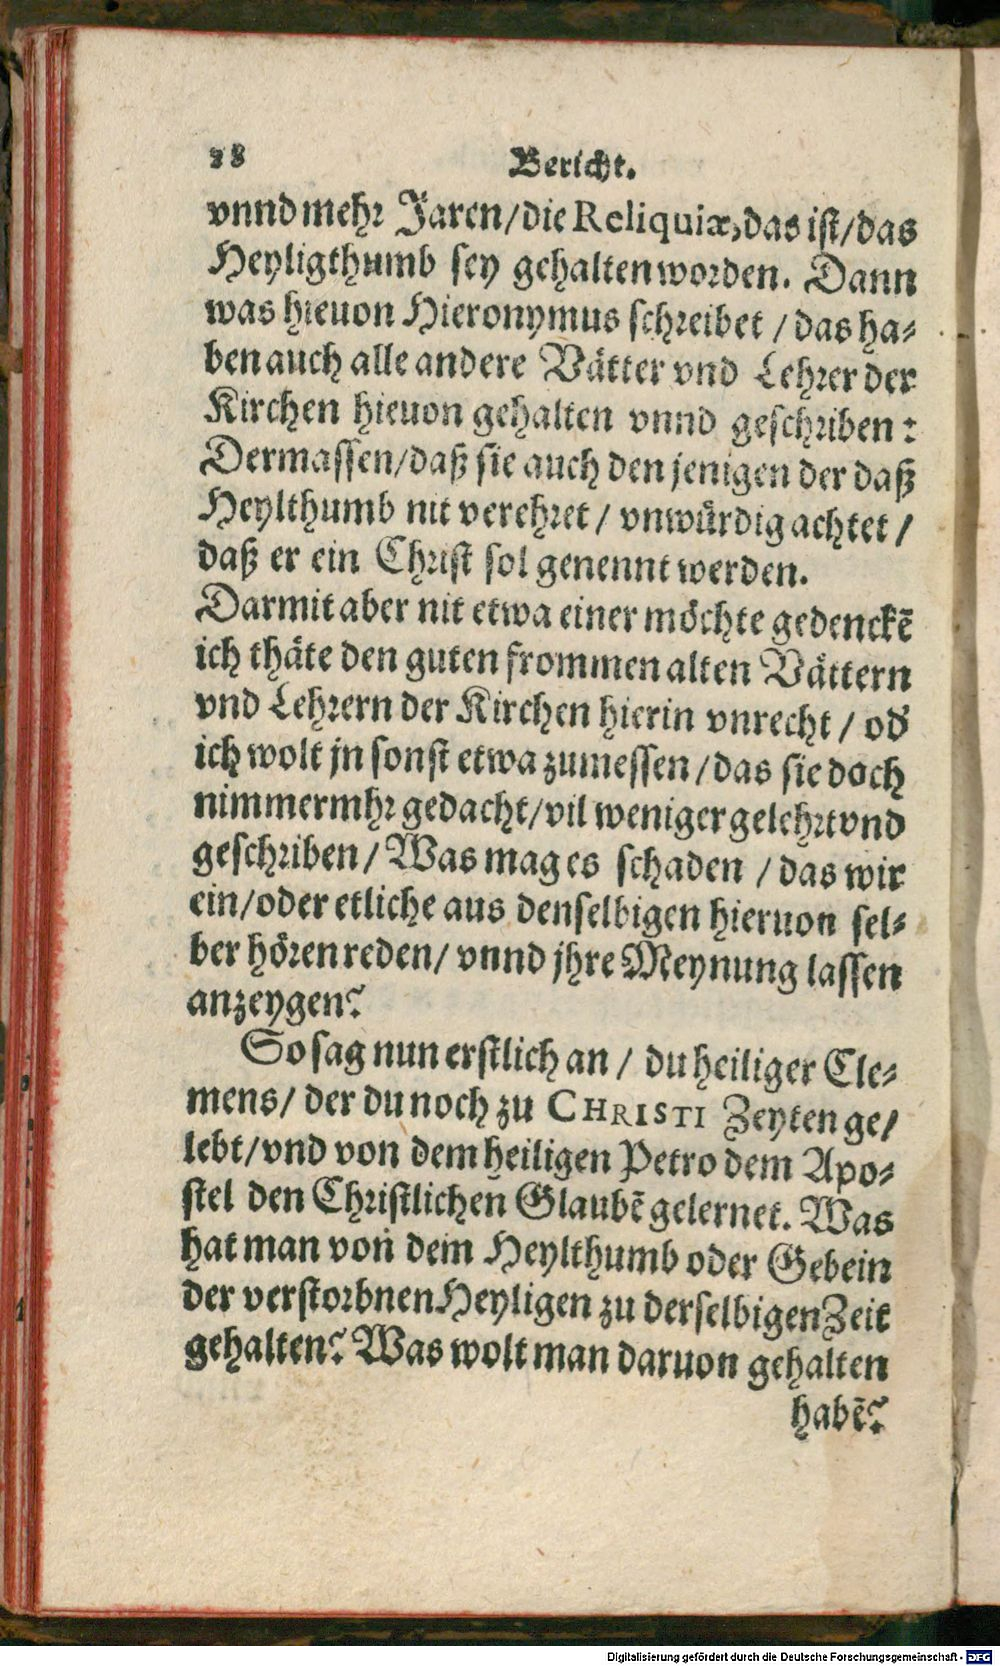 28 Bericht.
vnnd mehr Jaren/die Reliquiæ, das ist/das
Heyligthumb sey gehalten worden. Dann
was hieuon Hieronymus schreibet / das ha-
ben auch alle andere Vätter vnd Lehrer der
Kirchen hieuon gehalten vnnd geschriben:
Dermassen/daß sie auch den jenigen der daß
Heylthumb nit verehret / vnwürdig achtet /
daß er ein Christ sol genennt werden.
Darmit aber nit etwa einer möchte gedenckē
ich thäte den guten frommen alten Vättern
vnd Lehrern der Kirchen hierin vnrecht / od'
ich wolt jn sonst etwa zumessen / das sie doch
nimmermhr gedacht/vil weniger gelehrt vnd
geschriben / Was mag es schaden / das wir
ein/oder etliche aus denselbigen hieruon sel-
ber hören reden/ vnnd jhre Meynung lassen
anzeygen?
So sag nun erstlich an / du heiliger Cle-
mens/ der du noch zu CHRISTI Zeyten ge/
lebt/vnd von dem heiligen Petro dem Apo-
stel den Christlichen Glaubē gelernet. Was
hat man von dem Heylthumb oder Gebein
der verstorbnen Heyligen zu derselbigen Zeit
gehalten? Was wolt man daruon gehalten
habē?
Digitalisierung gefördert durch die Deutsche Forschungsgemeinschaft - DFG